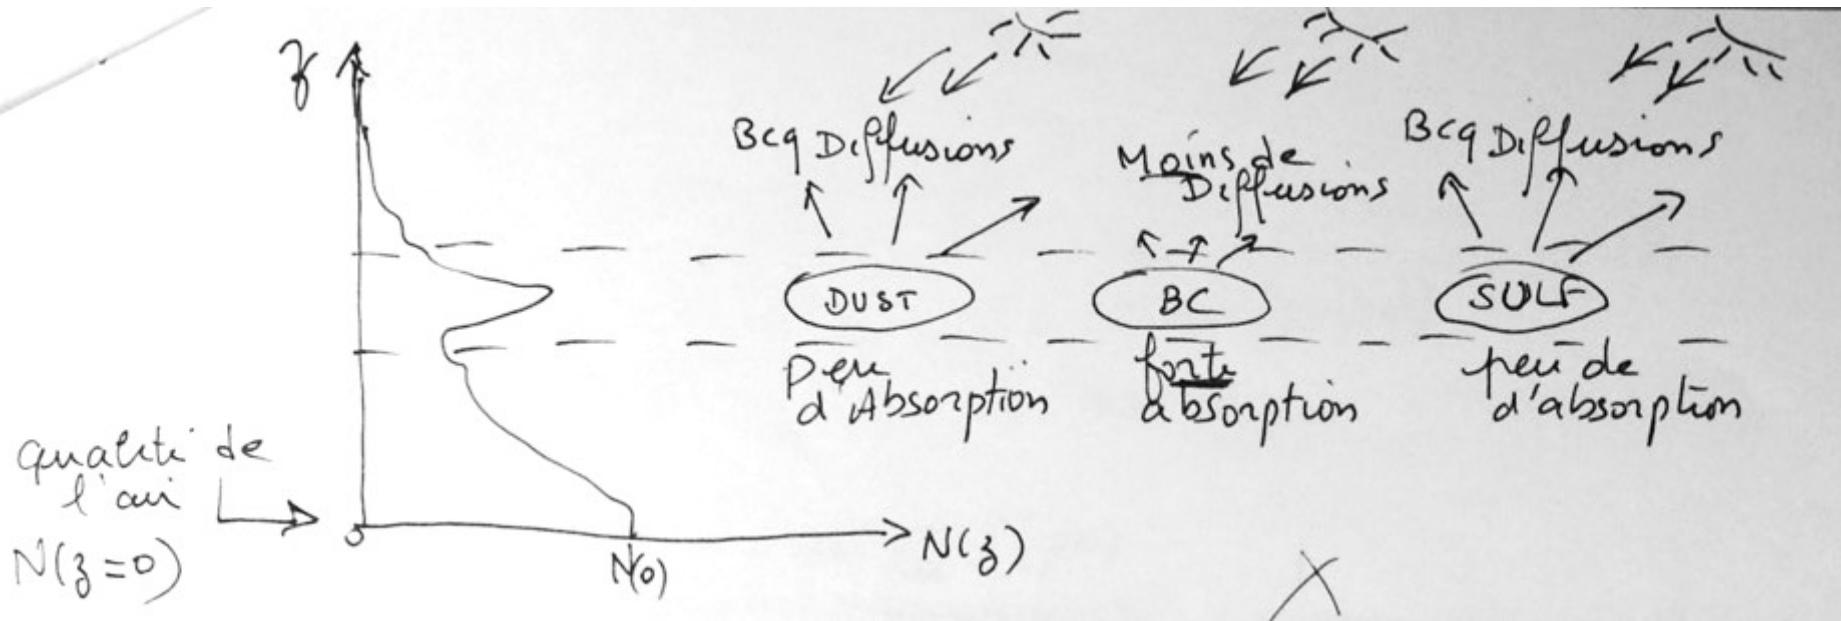 z
Bcq Diffusions
Moins de
Diffusions
Bcq Diffusions
DUST
BC
SULF
peu
d'Absorption
forte
absorption
peu de
d'absorption
qualité de
l'air
N(z=0)
0
N(0)
N(z)